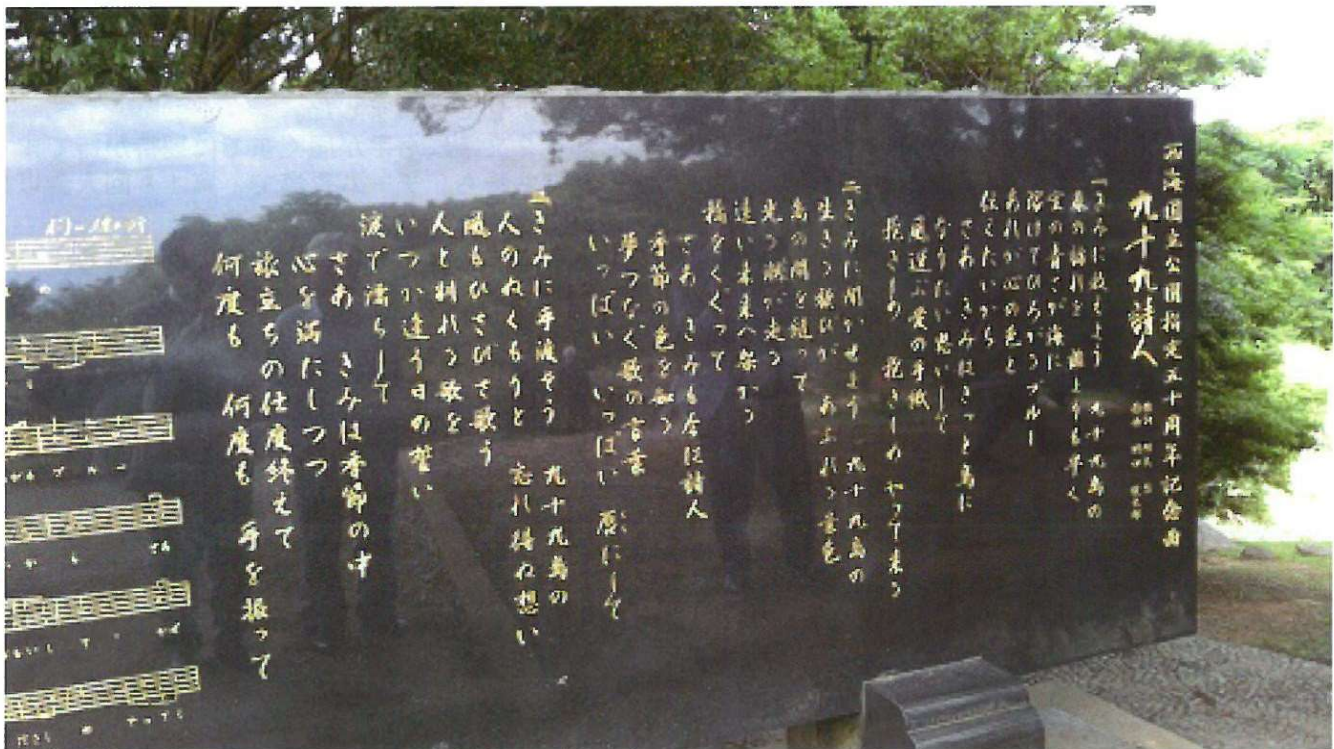 西海国立公園指定五十周年記念曲
九十九詩人
一 きみに教えよう 九十九島の
春の訪れを 誰よりも早く
空の青さが海に
溶けてひろがるブルー
あれが心の色と
伝えたいから
さあ きみはきっと島に
なりたい 想いして
風運ぶ愛の手紙
抱きしめ 抱きしめ やって来る
二 きみに聞かせよう 九十九島の
生きる歓びが あふれる音色
島の間を縫って
光る瀬が走る
遠い未来へ架かる
橋をくぐって
さあ きみも今は詩人
季節の色を知る
夢つなぐ歌の言葉
いっぱい いっぱい 唇にして
三 きみに手渡そう 九十九島の
人のぬくもりと 忘れ得ぬ想い
歌う
人と別れる歌を
いつか逢う日の誓い
涙で濡らして
さあ きみは季節の中
心を満たしつつ
旅立ちの仕度終えて
何度も 何度も 手を振って